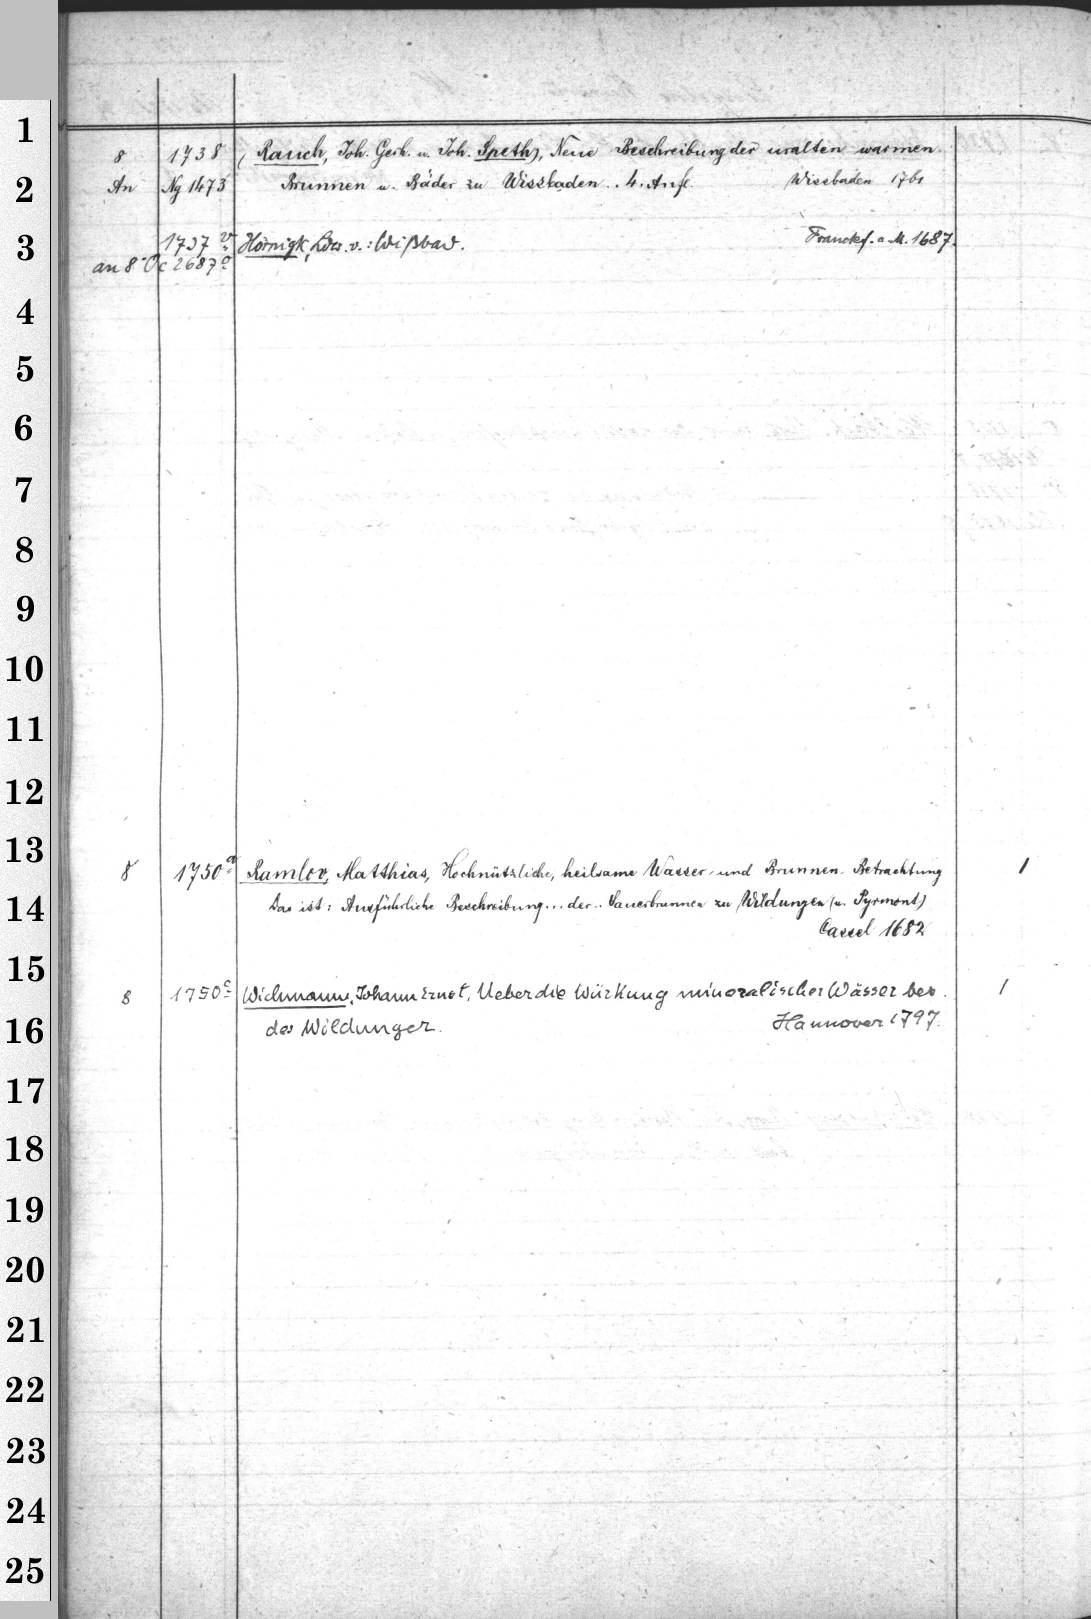 1
8 1738 (Rauch, Joh. Gerh. u. Joh. Speth), Neue Beschreibung der uralten warmen
2
An Ng 1473 Brunnen u. Bäder zu Wissbaden. 4. Aufl. Wissbaden 1761
3
1737 Hörnigk, Ldw. v.: Wißbad. Franckf. a. M. 1687.
an 8° Oc 2687
4
5
6
7
8
9
10
11
12
13
8 1750 a Ramlov, Matthias, Hochnützliche, heilsame Wasser- und Brunnen-Betrachtung 1
14
Das ist: Ausführliche Beschreibung... der.. Sauerbrunnen zu Wildungen (u. Pyrmont)
Cassel 1682
15
8 1750 c Wichmann, Johann Ernst, Ueber die Würkung mineralischer Wässer bes. 1
16
des Wildunger. Hannover 1797.
17
18
19
20
21
22
23
24
25